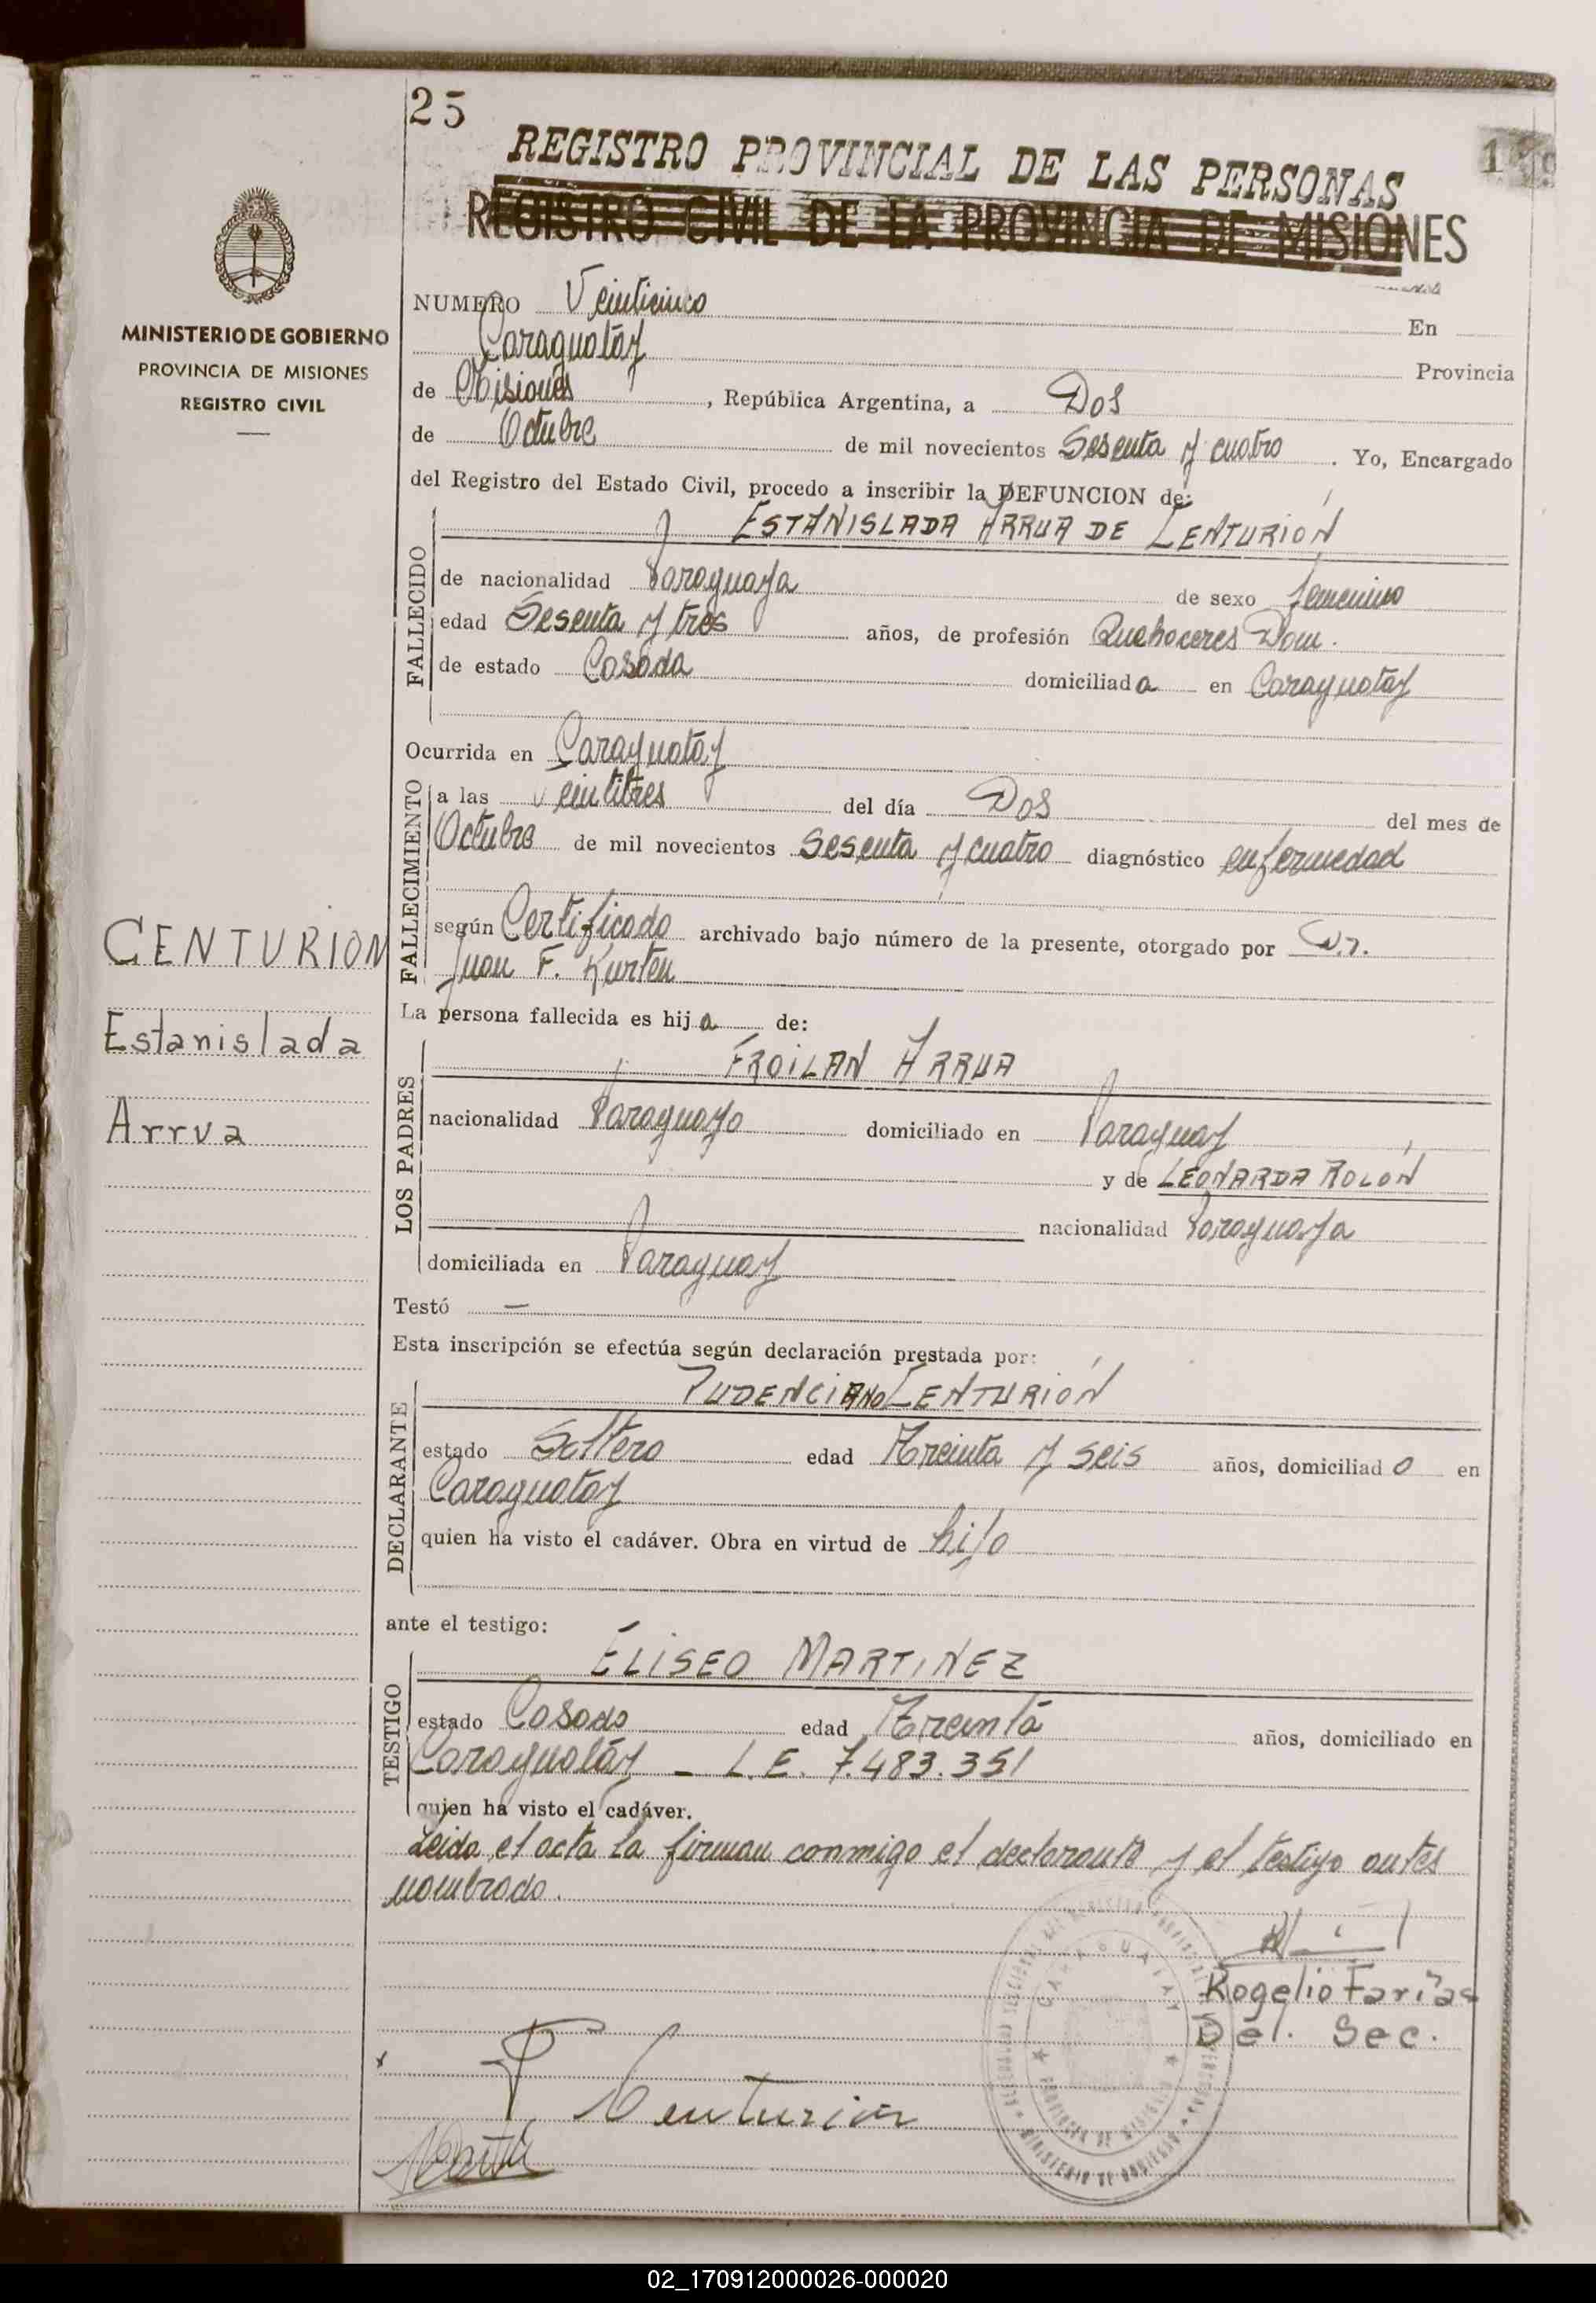 25
REGISTRO PROVINCIAL DE LAS PERSONAS
REGISTRO CIVIL DE LA PROVINCIA DE MISIONES
MINISTERIO DE GOBIERNO
PROVINCIA DE MISIONES
REGISTRO CIVIL
NUMERO Veinticinco En
Caraguatay Provincia
de Misiones, República Argentina, a Dos
de Octubre de mil novecientos Sesenta y cuatro. Yo, Encargado
del Registro del Estado Civil, procedo a inscribir la DEFUNCION de:
FALLECIDO
ESTANISLADA ARRUA DE CENTURIÓN
de nacionalidad Paraguaya de sexo femenino
edad Sesenta y tres años, de profesión Quehaceres Dom.
de estado Casada domiciliada en Caraguatay
Ocurrida en Caraguatay
FALLECIMIENTO
a las veintitres del día Dos del mes de
Octubre de mil novecientos Sesenta y cuatro diagnóstico enfermedad
según Certificado archivado bajo número de la presente, otorgado por
Juan F. Kurten
CENTURION
Estanislada
Arrua
La persona fallecida es hija de:
LOS PADRES
FROILAN ARRUA
nacionalidad Paraguayo domiciliado en Paraguay
y de LEONARDA ROLÓN
nacionalidad Paraguaya
domiciliada en Paraguay
Testó —
Esta inscripción se efectúa según declaración prestada por:
DECLARANTE
PUDENCIANO CENTURIÓN
estado Soltero edad Treinta y seis años, domiciliado en
Caraguatay
quien ha visto el cadáver. Obra en virtud de hijo
ante el testigo:
TESTIGO
ELISEO MARTINEZ
estado Casado edad Treinta años, domiciliado en
Caraguatay - L.E. 7.483.351
quien ha visto el cadáver.
Leida el acta la firman conmigo el declarante y el testigo antes
nombrado.
Rogelio Farias
Del. Sec.
CARAGUATAY
P Centurion
02_170912000026-000020